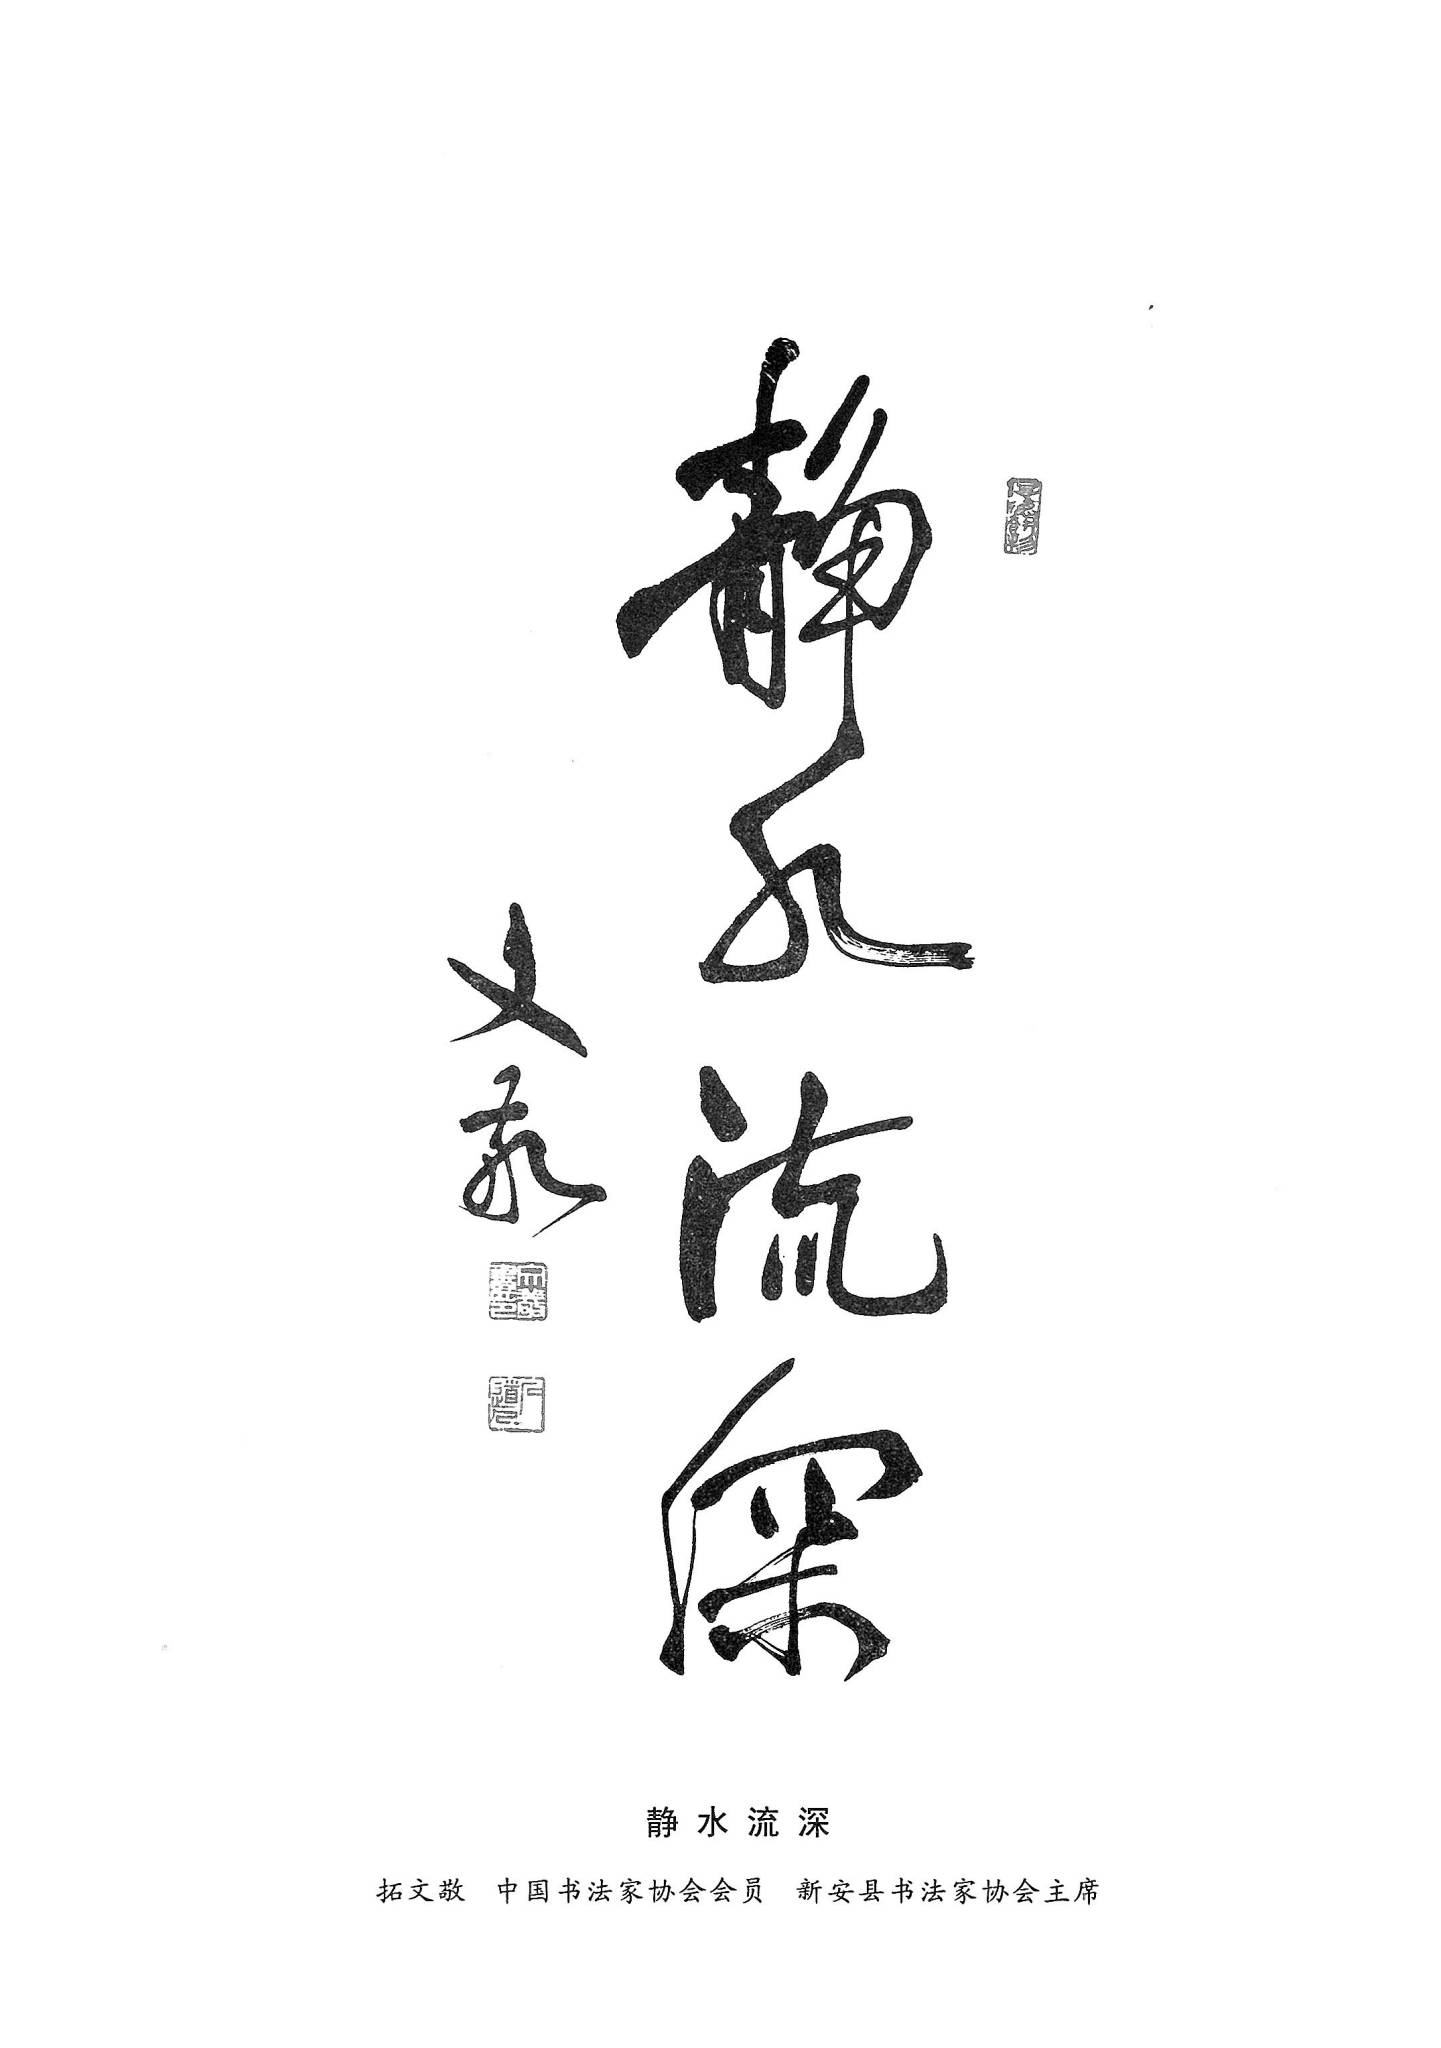 静水流深
文敬
静水流深
拓文敬 中国书法家协会会员 新安县书法家协会主席